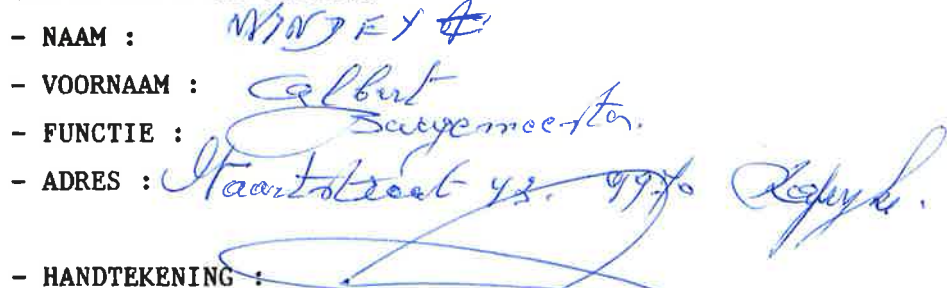 - NAAM : 
- VOORNAAM : Albert
- FUNCTIE : Burgemeester.
- ADRES : Vaartstraat 42. 9970 Kaprijke.
- HANDTEKENING :